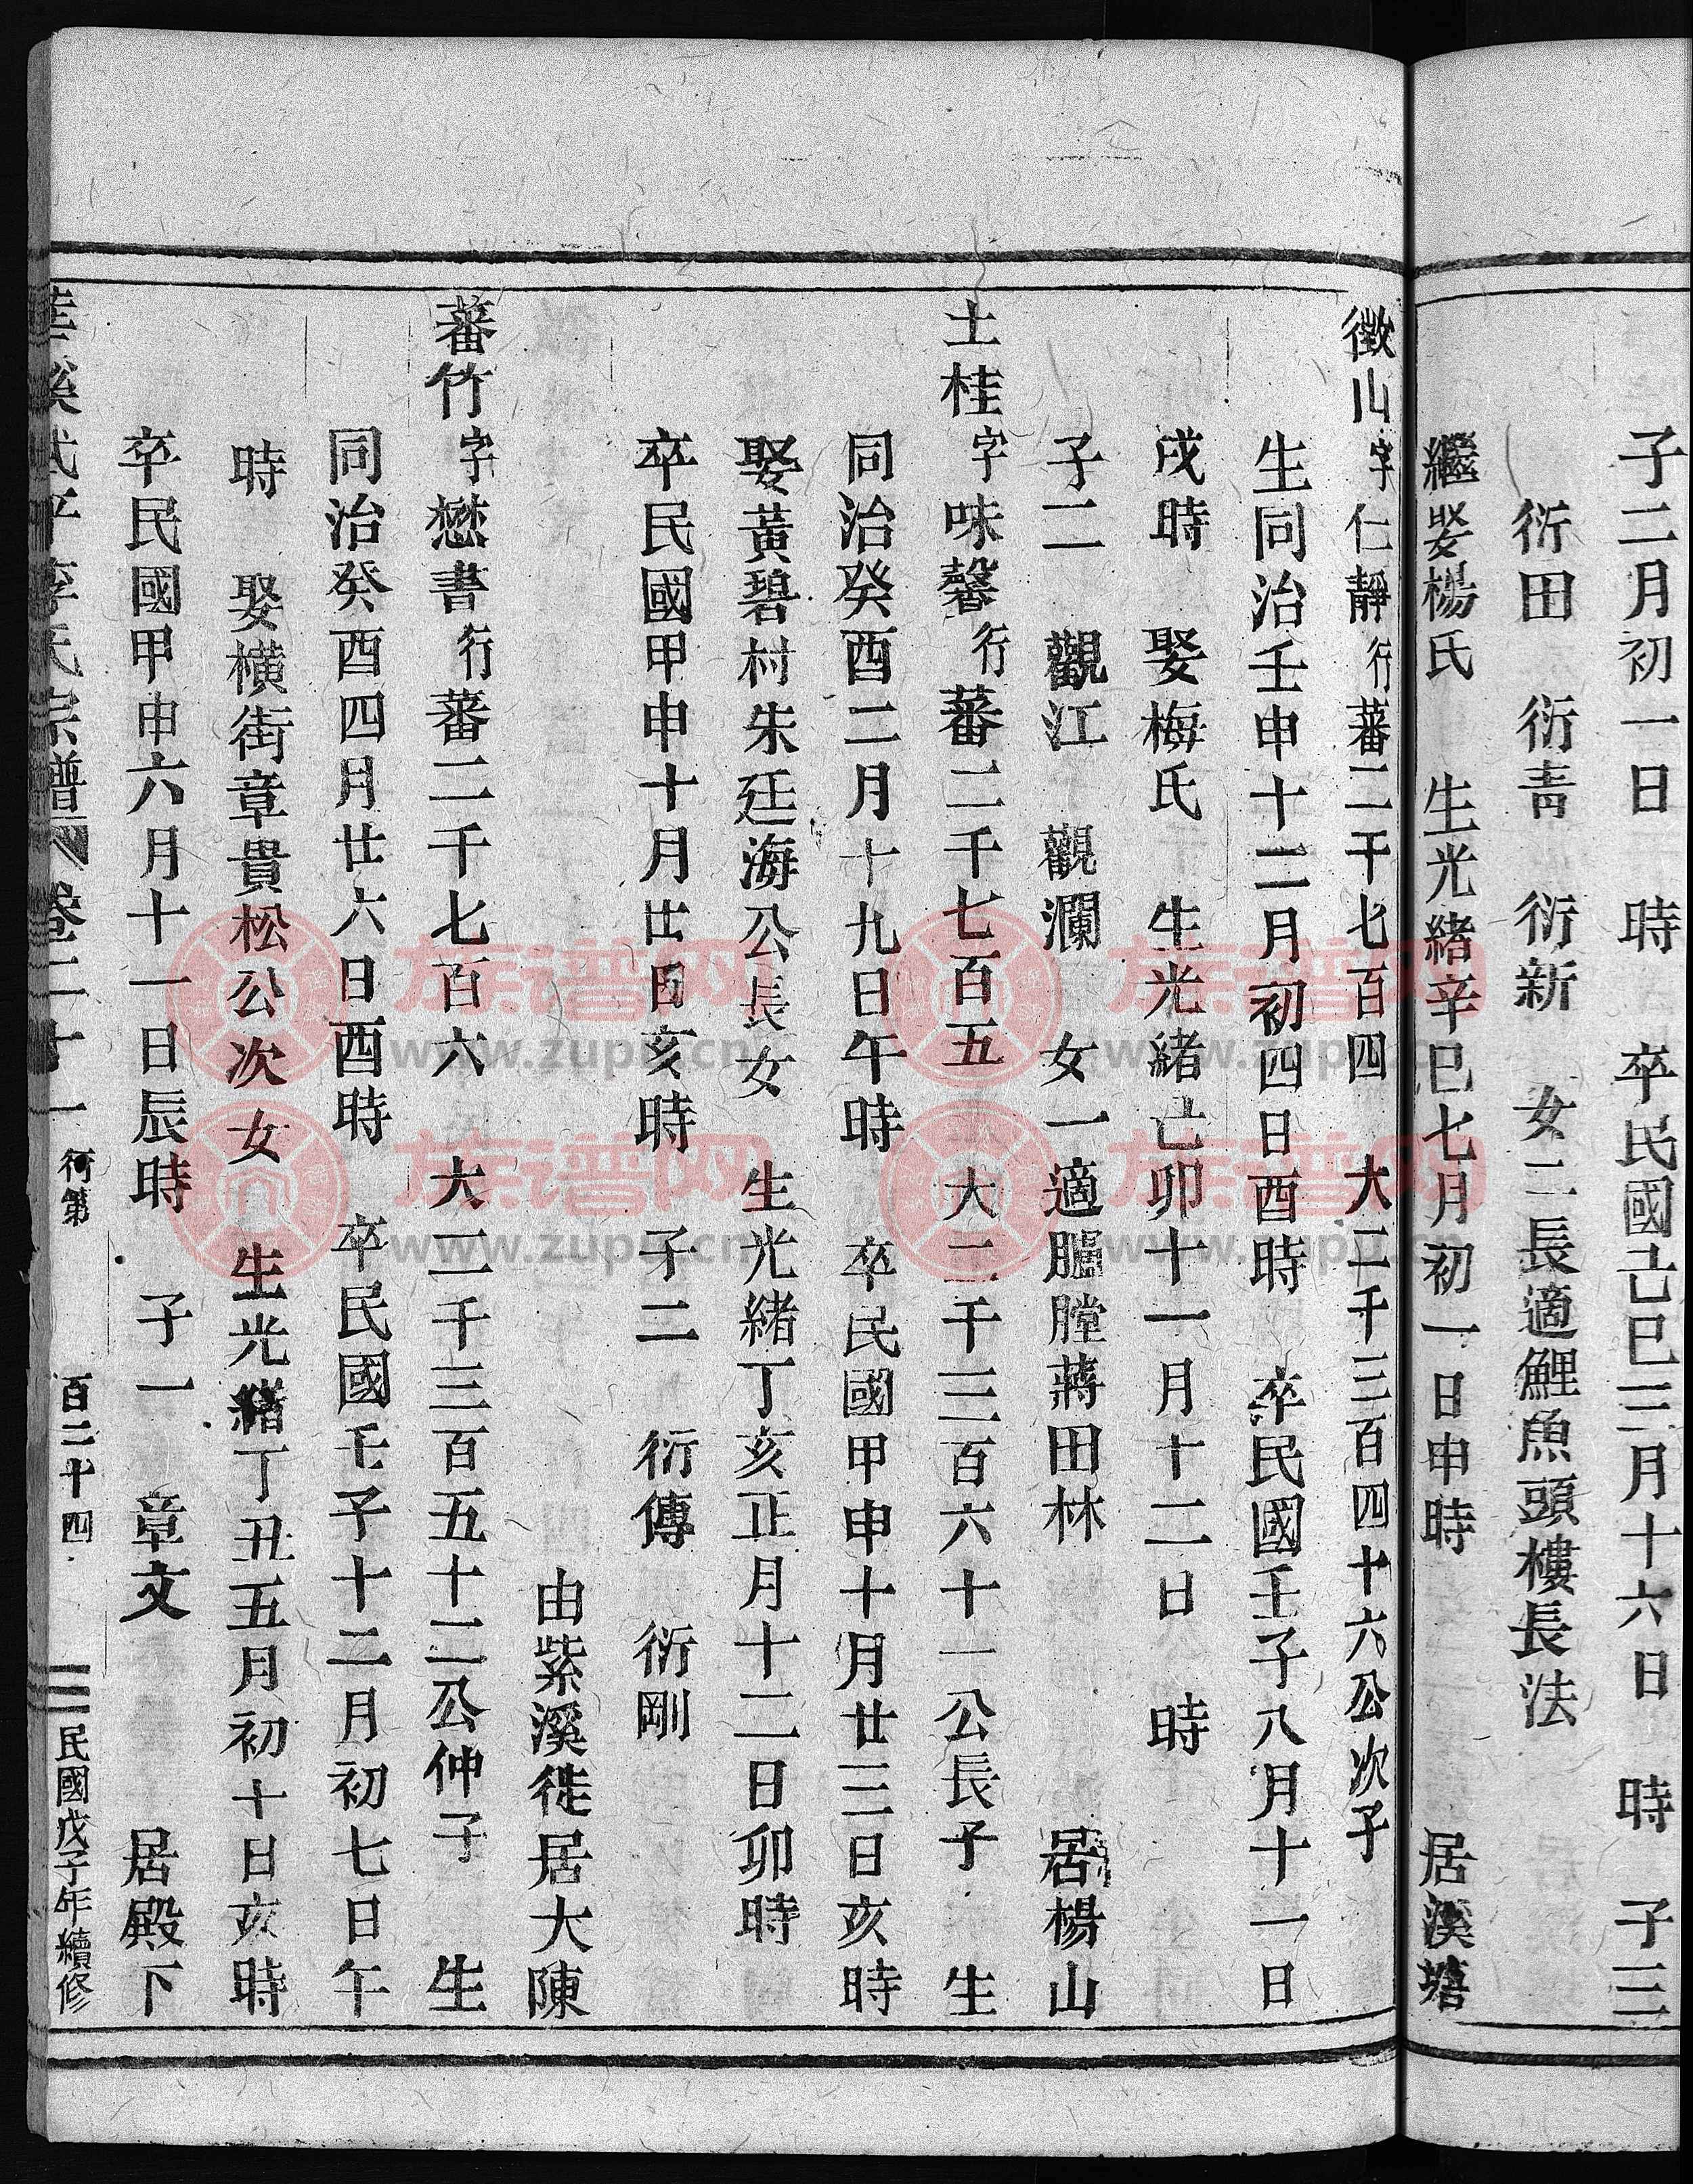 子二月初一日　時　卒民國己巳三月十六日　時　子三
衍田　衍靑　衍新　女二長適鯉魚頭樓長法
繼娶楊氏　生光緒辛巳七月初一日申時　居溪塘
徵山字仁靜行蕃二千七百四　大二千三百四十六公次子
生同治壬申十二月初四日酉時　卒民國壬子八月十一日
戌時　娶梅氏　生光緒己卯十一月十二日　時
子二　觀江　觀瀾　女一適膛蔣田林　居楊山
土桂字味馨行蕃二千七百五　大二千三百六十一公長子　生
同治癸酉二月十九日午時　卒民國甲申十月廿三日亥時
娶黃碧村朱廷海公長女　生光緒丁亥正月十二日卯時
卒民國甲申十月廿日亥時　子二　衍傳　衍剛
由紫溪徙居大陳
蕃竹字懋書行蕃二千七百六　大二千三百五十二公仲子　生
同治癸酉四月廿六日酉時　卒民國壬子十二月初七日午
時　娶橫街章貴松公次女　生光緒丁丑五月初十日亥時
卒民國甲申六月十一日辰時　子一　章文　居殿下
溪武平李氏宗譜　卷二十一　行第　百二十四　民國戊子年續修
族谱网 www.zupu.cn
族谱网 www.zupu.cn
族谱网 www.zupu.cn
族谱网 www.zupu.cn